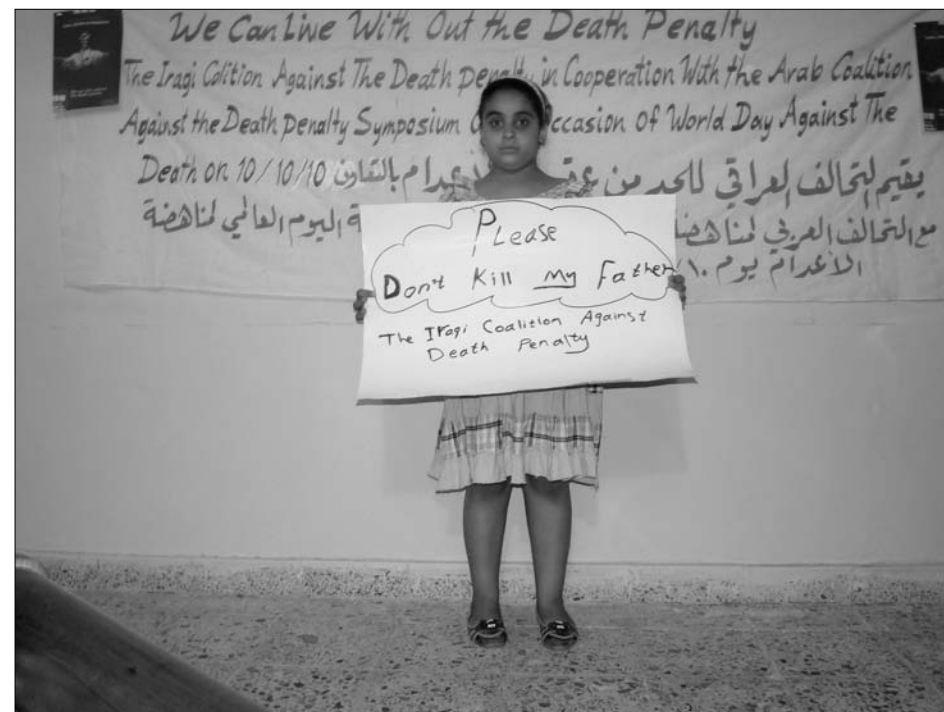 We Can Live With Out the Death Penalty
The Iraqi Colition Against The Death penalty in Cooperation With the Arab Coalition
Against the Death Penalty Symposium ccasion Of World Day Against The
Death on 10/10/10
يقيم لتحالف العراقي للحد من عدام بالتعاون
مع التحالف العربي لمناهضة ة اليوم العالمي لمناهضة
الاعدام يوم ١٠
PLease
Don't Kill my Father
The Iraqi Coalition Against
Death Penalty